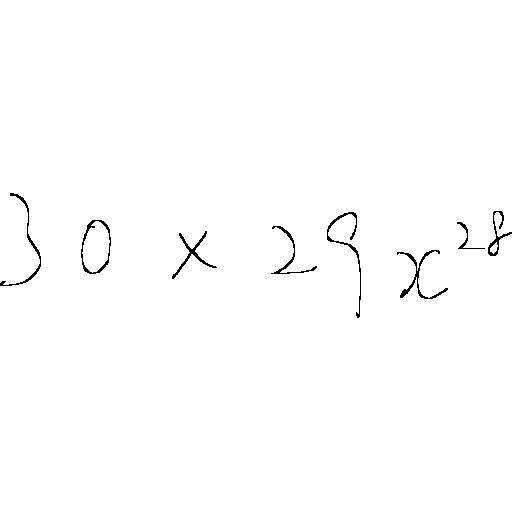 30 × 29x^{28}